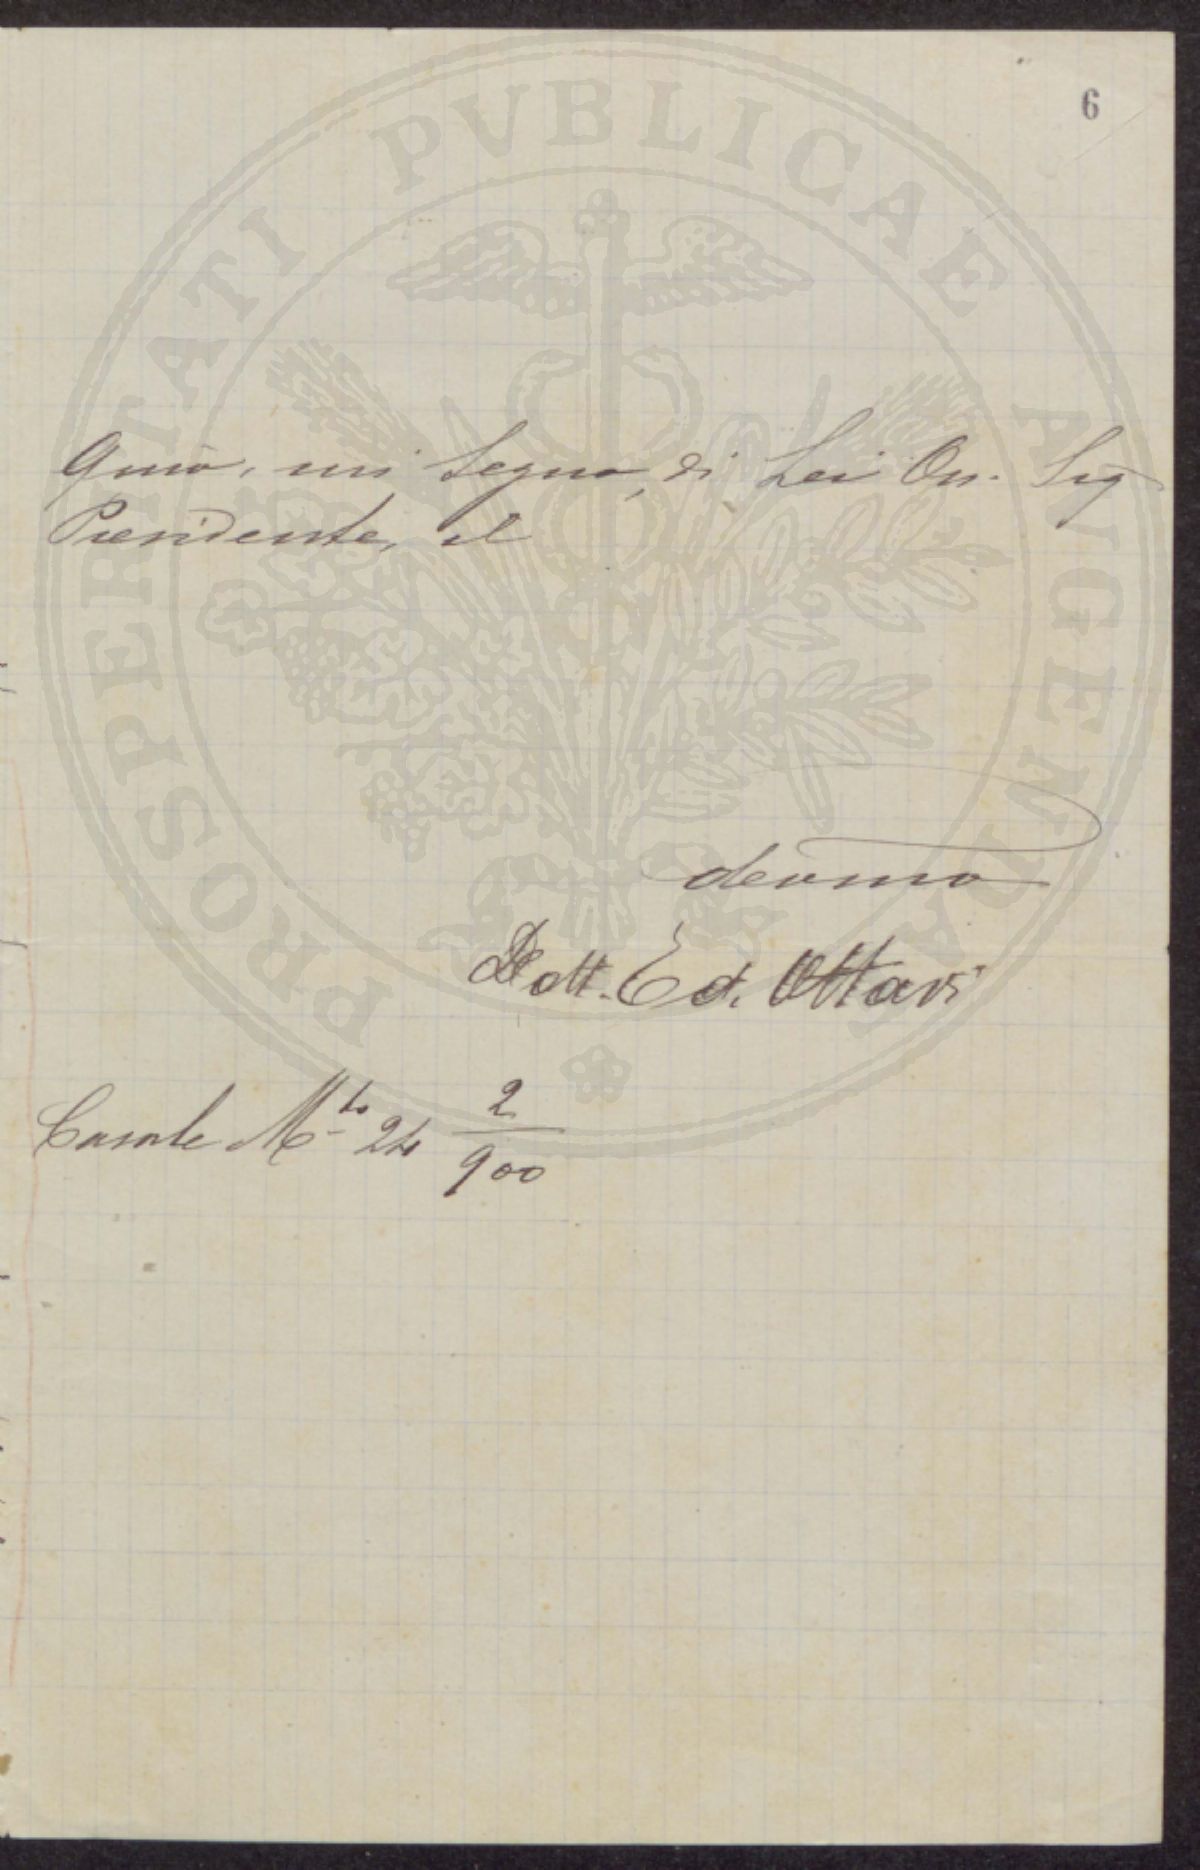 6
quio, mi segno, di Lei On. Sig
Presidente, il
devmo
Dott. Ed. Ottavi
Casale M.to 24 2/900
PROSPERITATI PVBLICAE AVGENDAE